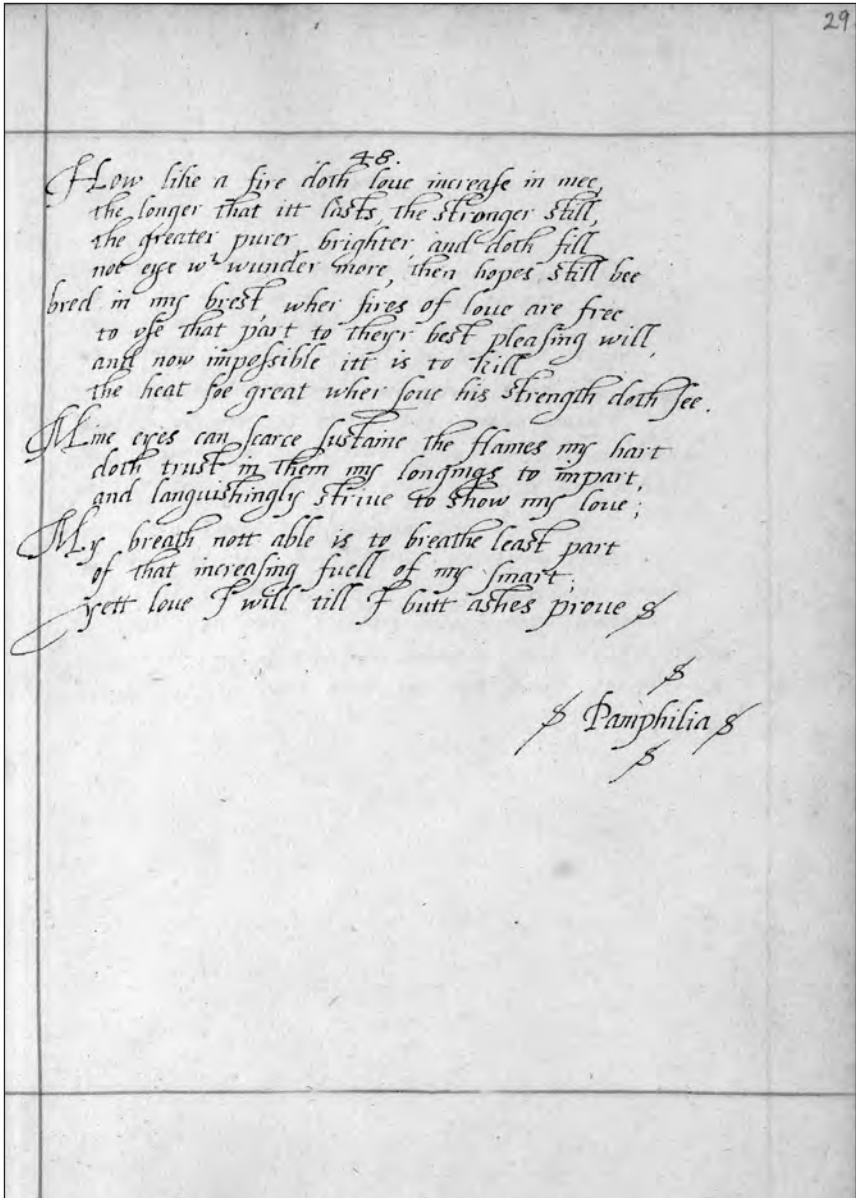 29
48.
How like a fire doth love increase in mee,
the longer that itt lasts, the stronger still,
the greater purer, brighter, and doth fill
noe eye wt wunder more, then hopes still bee
bred in my brest, wher fires of love are free
to use that part to theyr best pleasing will,
and now impossible itt is to kill
the heat soe great wher love his strength doth see.
Mine eyes can scarce sustaine the flames my hart
doth trust in them my longings to impart,
and languishingly strive to show my love;
My breath nott able is to breathe least part
of that increasing fuell of my smart;
yett love I will till I butt ashes prove $
$
$ Pamphilia $
$